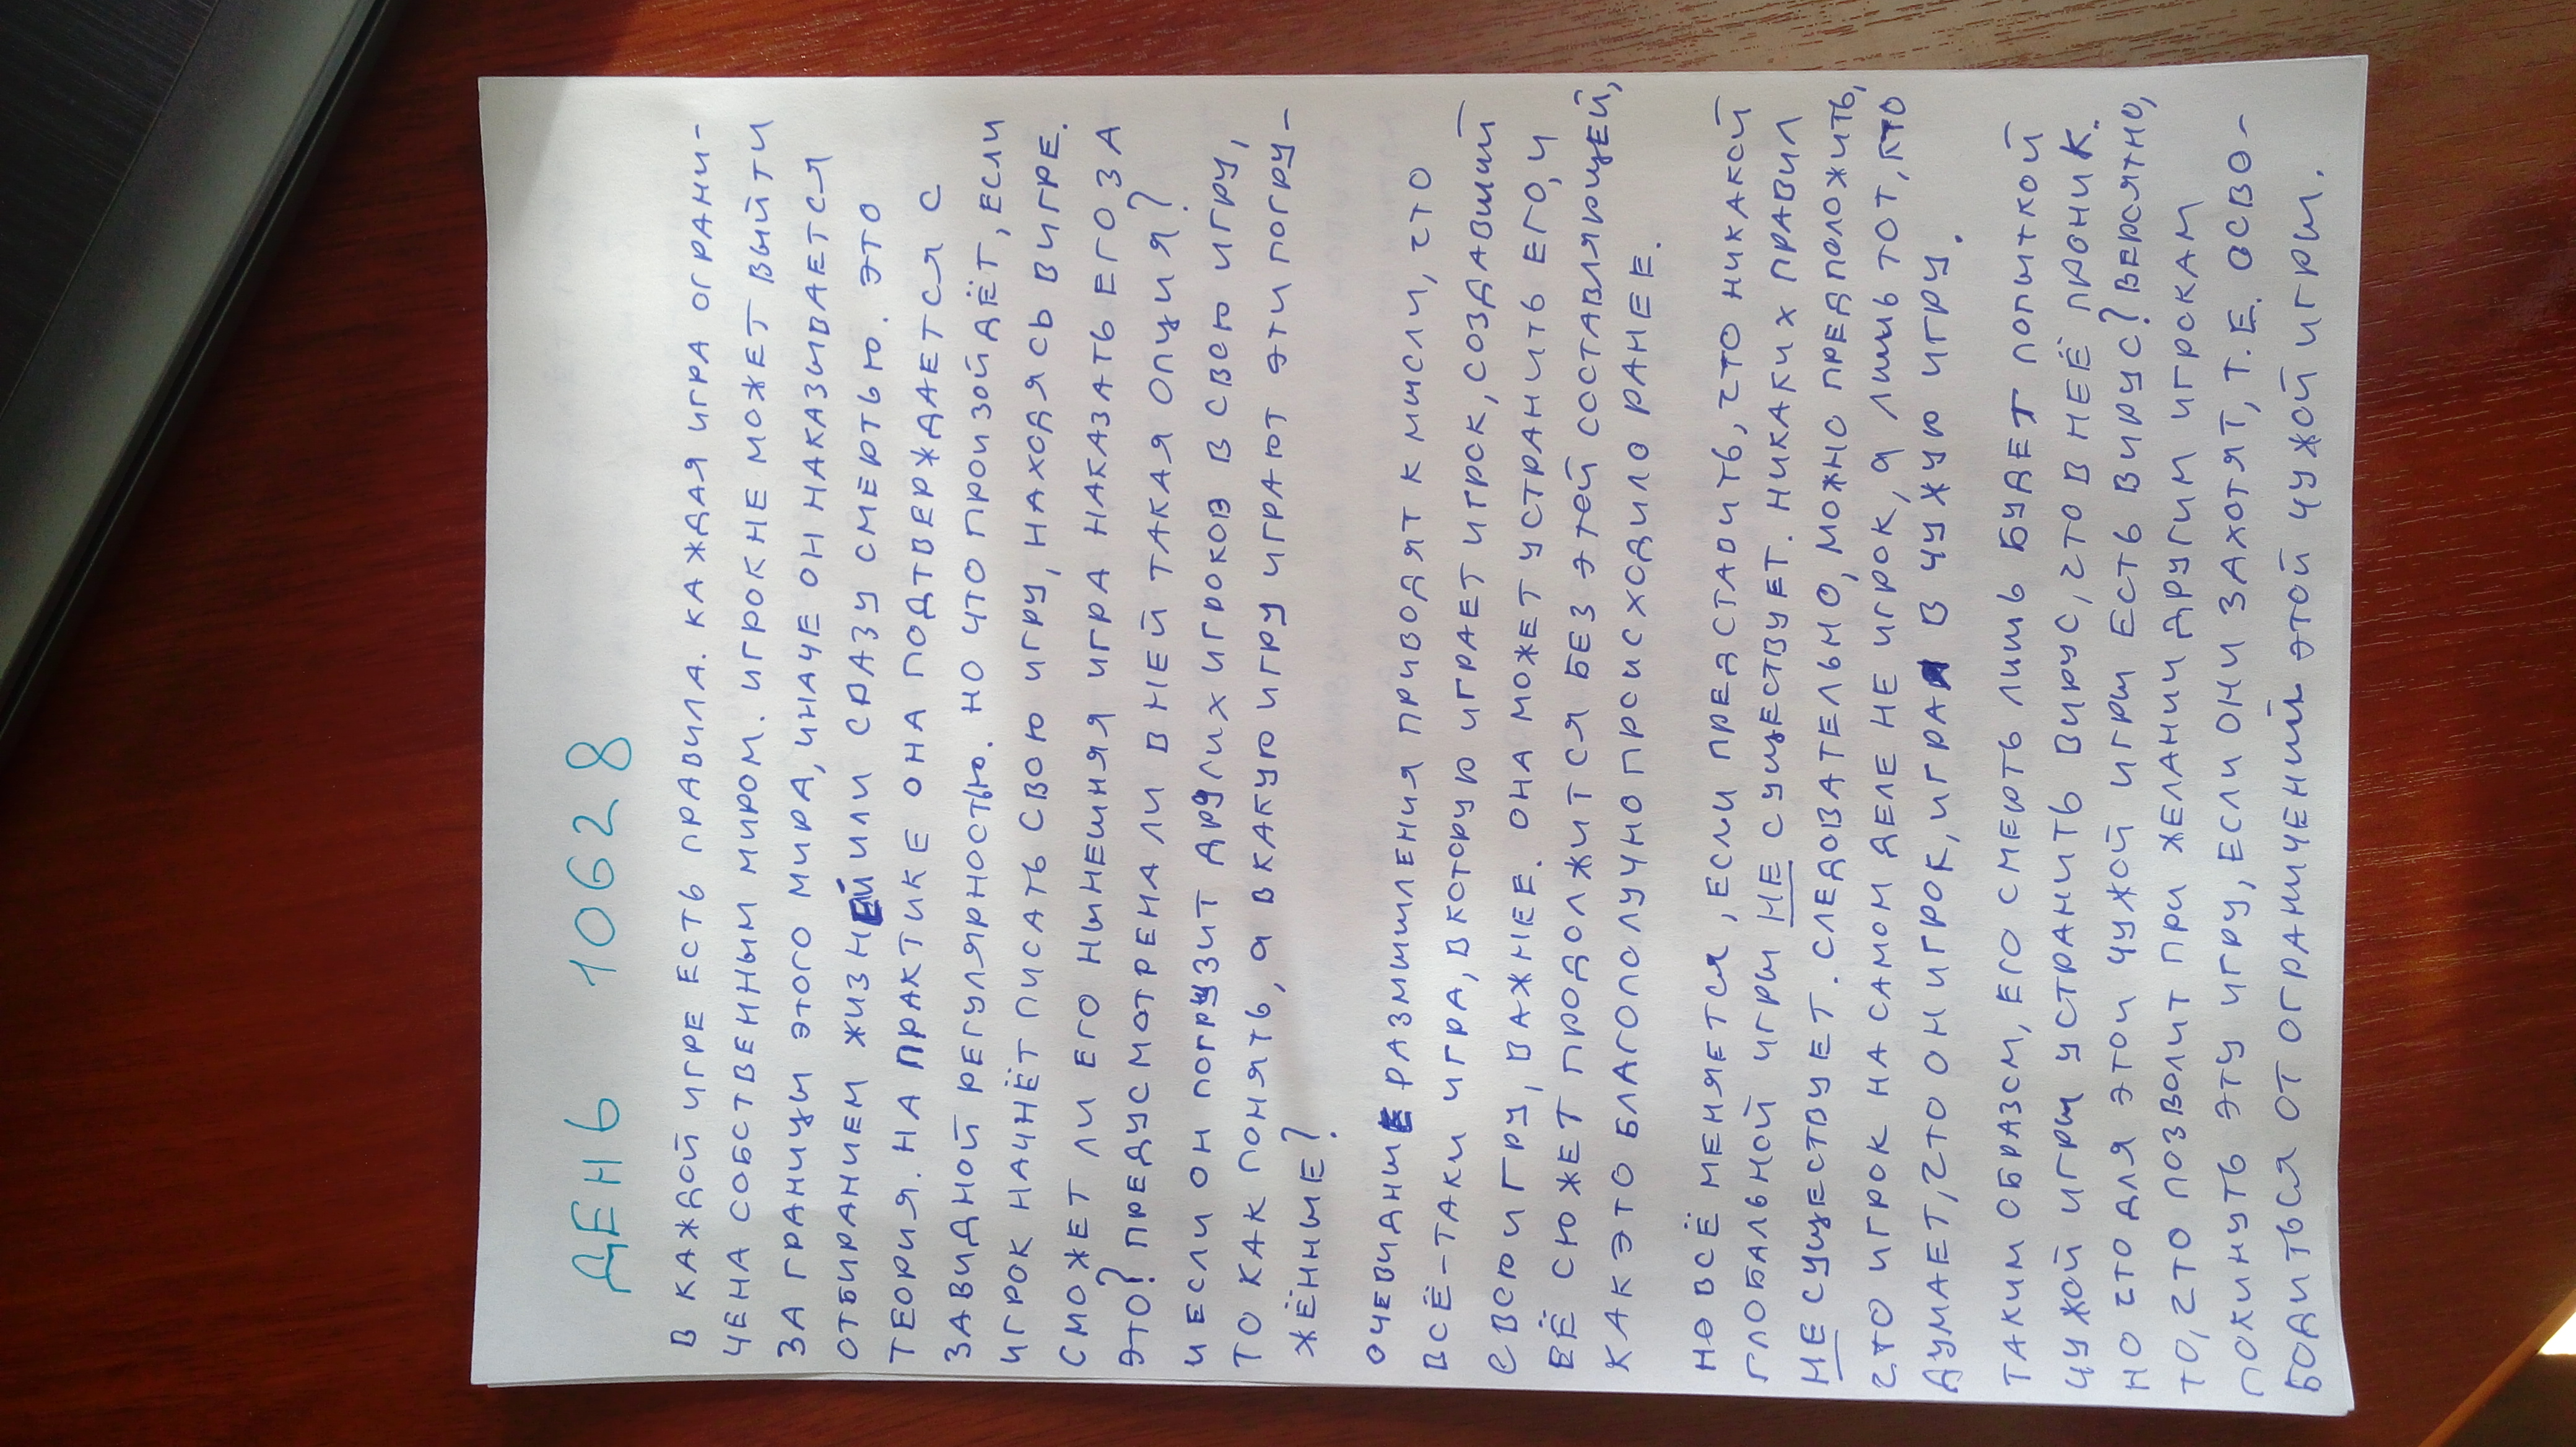 ДЕНЬ 10628
В КАЖДОЙ ИГРЕ ЕСТЬ ПРАВИЛА. КАЖДАЯ ИГРА ОГРАНИ-
ЧЕНА СОБСТВЕННЫМ МИРОМ. ИГРОК НЕ МОЖЕТ ВЫЙТИ
ЗА ГРАНИЦЫ ЭТОГО МИРА, ИНАЧЕ ОН НАКАЗЫВАЕТСЯ
ОТБИРАНИЕМ ЖИЗНЕЙ ИЛИ СРАЗУ СМЕРТЬЮ. ЭТО
ТЕОРИЯ. НА ПРАКТИКЕ ОНА ПОДТВЕРЖДАЕТСЯ С
ЗАВИДНОЙ РЕГУЛЯРНОСТЬЮ. НО ЧТО ПРОИЗОЙДЁТ, ЕСЛИ
ИГРОК НАЧНЁТ ПИСАТЬ СВОЮ ИГРУ, НАХОДЯСЬ В ИГРЕ.
СМОЖЕТ ЛИ ЕГО НЫНЕШНЯЯ ИГРА НАКАЗАТЬ ЕГО ЗА
ЭТО? ПРЕДУСМОТРЕНА ЛИ В НЕЙ ТАКАЯ ОПЦИЯ?
И ЕСЛИ ОН ПОГРУЗИТ ДРУГИХ ИГРОКОВ В СВОЮ ИГРУ,
ТО КАК ПОНЯТЬ, А В КАКУЮ ИГРУ ИГРАЮТ ЭТИ ПОГРУ-
ЖЁННЫЕ?
ОЧЕВИДНЫЕ РАЗМЫШЛЕНИЯ ПРИВОДЯТ К МЫСЛИ, ЧТО
ВСЁ-ТАКИ ИГРА, В КОТОРУЮ ИГРАЕТ ИГРОК, СОЗДАВШИЙ
СВОЮ ИГРУ, ВАЖНЕЕ. ОНА МОЖЕТ УСТРАНИТЬ ЕГО, И
ЕЁ СЮЖЕТ ПРОДОЛЖИТСЯ БЕЗ ЭТОЙ СОСТАВЛЯЮЩЕЙ,
КАК ЭТО БЛАГОПОЛУЧНО ПРОИСХОДИЛО РАНЕЕ.
НО ВСЁ МЕНЯЕТСЯ, ЕСЛИ ПРЕДСТАВИТЬ, ЧТО НИКАКОЙ
ГЛОБАЛЬНОЙ ИГРЫ НЕ СУЩЕСТВУЕТ. НИКАКИХ ПРАВИЛ
НЕ СУЩЕСТВУЕТ. СЛЕДОВАТЕЛЬНО, МОЖНО ПРЕДПОЛОЖИТЬ,
ЧТО ИГРОК НА САМОМ ДЕЛЕ НЕ ИГРОК, А ЛИШЬ ТОТ, КТО
ДУМАЕТ, ЧТО ОН ИГРОК, ИГРАЯ В ЧУЖУЮ ИГРУ.
ТАКИМ ОБРАЗОМ, ЕГО СМЕРТЬ ЛИШЬ БУДЕТ ПОПЫТКОЙ
ЧУЖОЙ ИГРЫ УСТРАНИТЬ ВИРУС, ЧТО В НЕЁ ПРОНИК.
НО ЧТО ДЛЯ ЭТОЙ ЧУЖОЙ ИГРЫ ЕСТЬ ВИРУС? ВЕРОЯТНО,
ТО, ЧТО ПОЗВОЛИТ ПРИ ЖЕЛАНИИ ДРУГИМ ИГРОКАМ
ПОКИНУТЬ ЭТУ ИГРУ, ЕСЛИ ОНИ ЗАХОТЯТ, Т.Е. ОСВО-
БОДИТЬСЯ ОТ ОГРАНИЧЕНИЙ ЭТОЙ ЧУЖОЙ ИГРЫ.